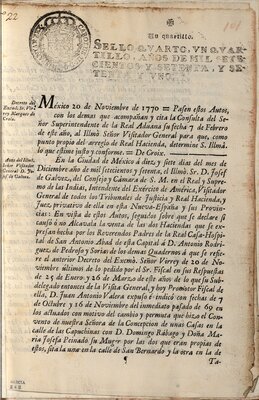 22
101
Un quartillo.
SELLO QVARTO, VN QVAR-
TILLO, AÑOS DE MIL SETE-
CIENTOS Y SETENTA, Y SE-
TENTA Y VNO.
Decreto del
Excmô. Sr. Vir-
rey Marques de
Croix.
Mexico 20 de Noviembre de 1770 = Pasen estos Autos,
con los demas que acompañan y cita la Consulta del Se-
ñor Superintendente de la Real Aduana su fecha 7 de Febrero
de este año, al Illmô Señor Visitador General para que, como
punto propio del arreglo de Real Hacienda, determine S. Illmâ.
lo que estime justo y conforme. = De Croix.
Auto del Illmô.
Señor Visitador
General D. Jo-
sef de Galvez.
En la Ciudad de México á diez y siete dias del mes de
Diciembre año de mil setecientos y setenta, el Illmô Sr. D. Josef
de Galvez, del Consejo y Cámara de S. M. en el Real y Supre-
mo de las Indias, Intendente del Exército de América, Visitador
General de todos los Tribunales de Justicia y Real Hacienda, y
Juez privativo de ella en esta Nueva-España y sus Provin-
cias: En vista de estos Autos, seguidos sobre que se declare si
causó ó no Alcavala la venta de las dos Haciendas que se ex-
presan hecha por los Reverendos Padres de la Real Casa-Hospi-
tal de San Antonio Abad de esta Capital á D. Antonio Rodri-
guez, de Pedroso y Soria; de los demas Quadernos á que se refie-
re el anterior Decreto del Exemô. Señor Virrey de 20 de No-
viembre últimos de lo pedido por el Sr. Fiscal en sus Respuestas
de 25 de Enero y 26 de Marzo de este año; de lo que su Sub-
delegado entonces de la Visita General, y hoy Promotor Fiscal de
ella, D. Juan Antonio Valera expuso é indicó con fechas de 7
de Octubre y 16 de Noviembre del inmediato pasado de 69 en
los actuados con motivo del cambio y permuta que hizo el Con-
vento de nuestra Señora de la Concepcion de unas Casas en la
calle de las Capuchinas con D. Domingo Rábago y Doña Ma-
ria Josefa Peinado su Muger por las dos que eran propias de
estos, sita la una en la calle de San Bernardo y la otra en la de
Ta-